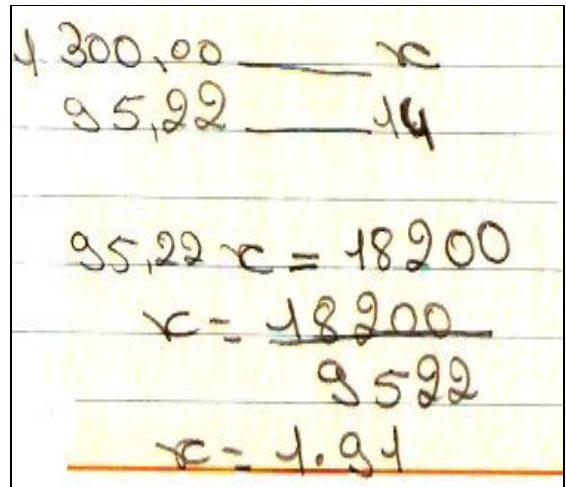 1300,00 ___ x
95,22 ___ 14
95,22 x = 18200
x = 18200
9522
x = 1.91